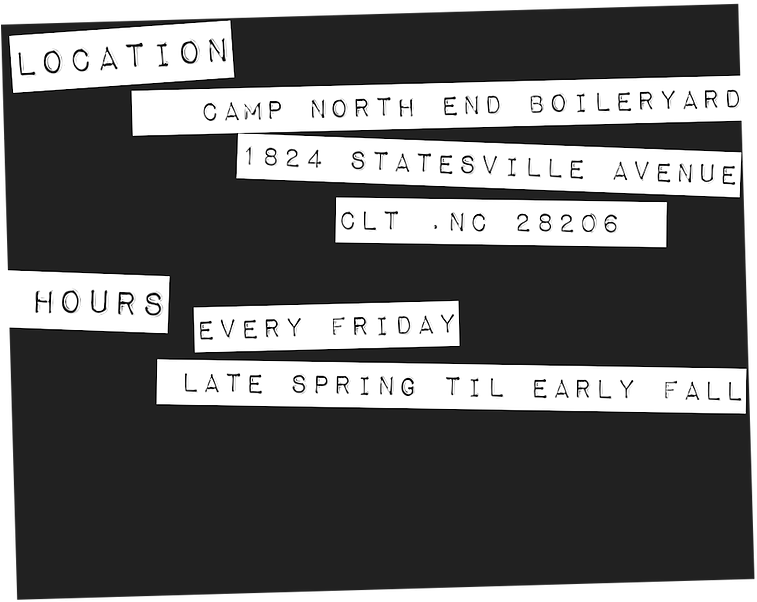 LOCATION
CAMP NORTH END BOILERYARD
1824 STATESVILLE AVENUE
CLT .NC 28206
HOURS
EVERY FRIDAY
LATE SPRING TIL EARLY FALL